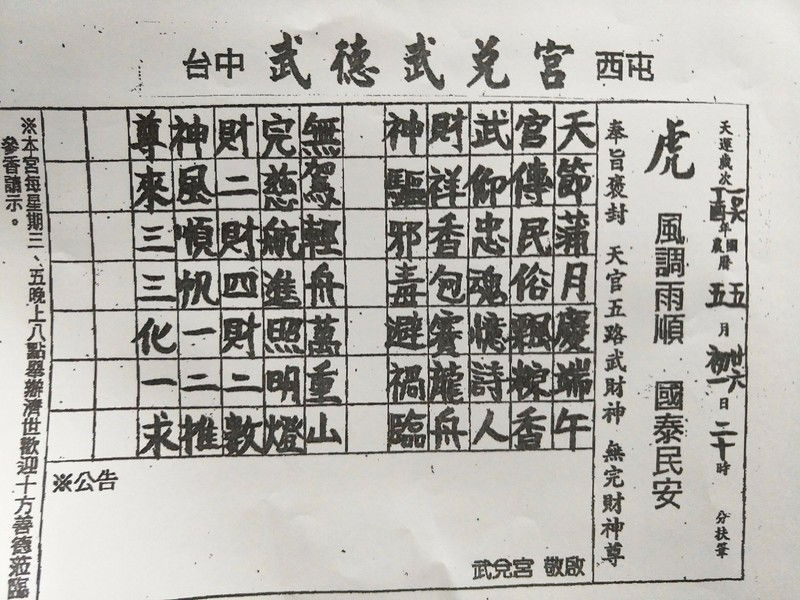 台中 武德武兌宮 西屯
天運歲次丁酉年 國曆 農曆 五 五 月 廿六 初一 日 二十時 分扶筆
虎 風調雨順 國泰民安
奉旨褒封 天官五路武財神 無完財神尊
天節蒲月慶端午
官傳民俗飄粽香
武仰忠魂憶詩人
財祥香包賽龍舟
神驅邪毒避禍臨
無駕輕舟萬重山
完慈航進照明燈
財二財四財二數
神風順帆一二推
尊來三三化一求
※公告
武兌宮 敬啟
※本宮每星期三、五晚上八點舉辦濟世歡迎十方善德蒞臨
參香請示。